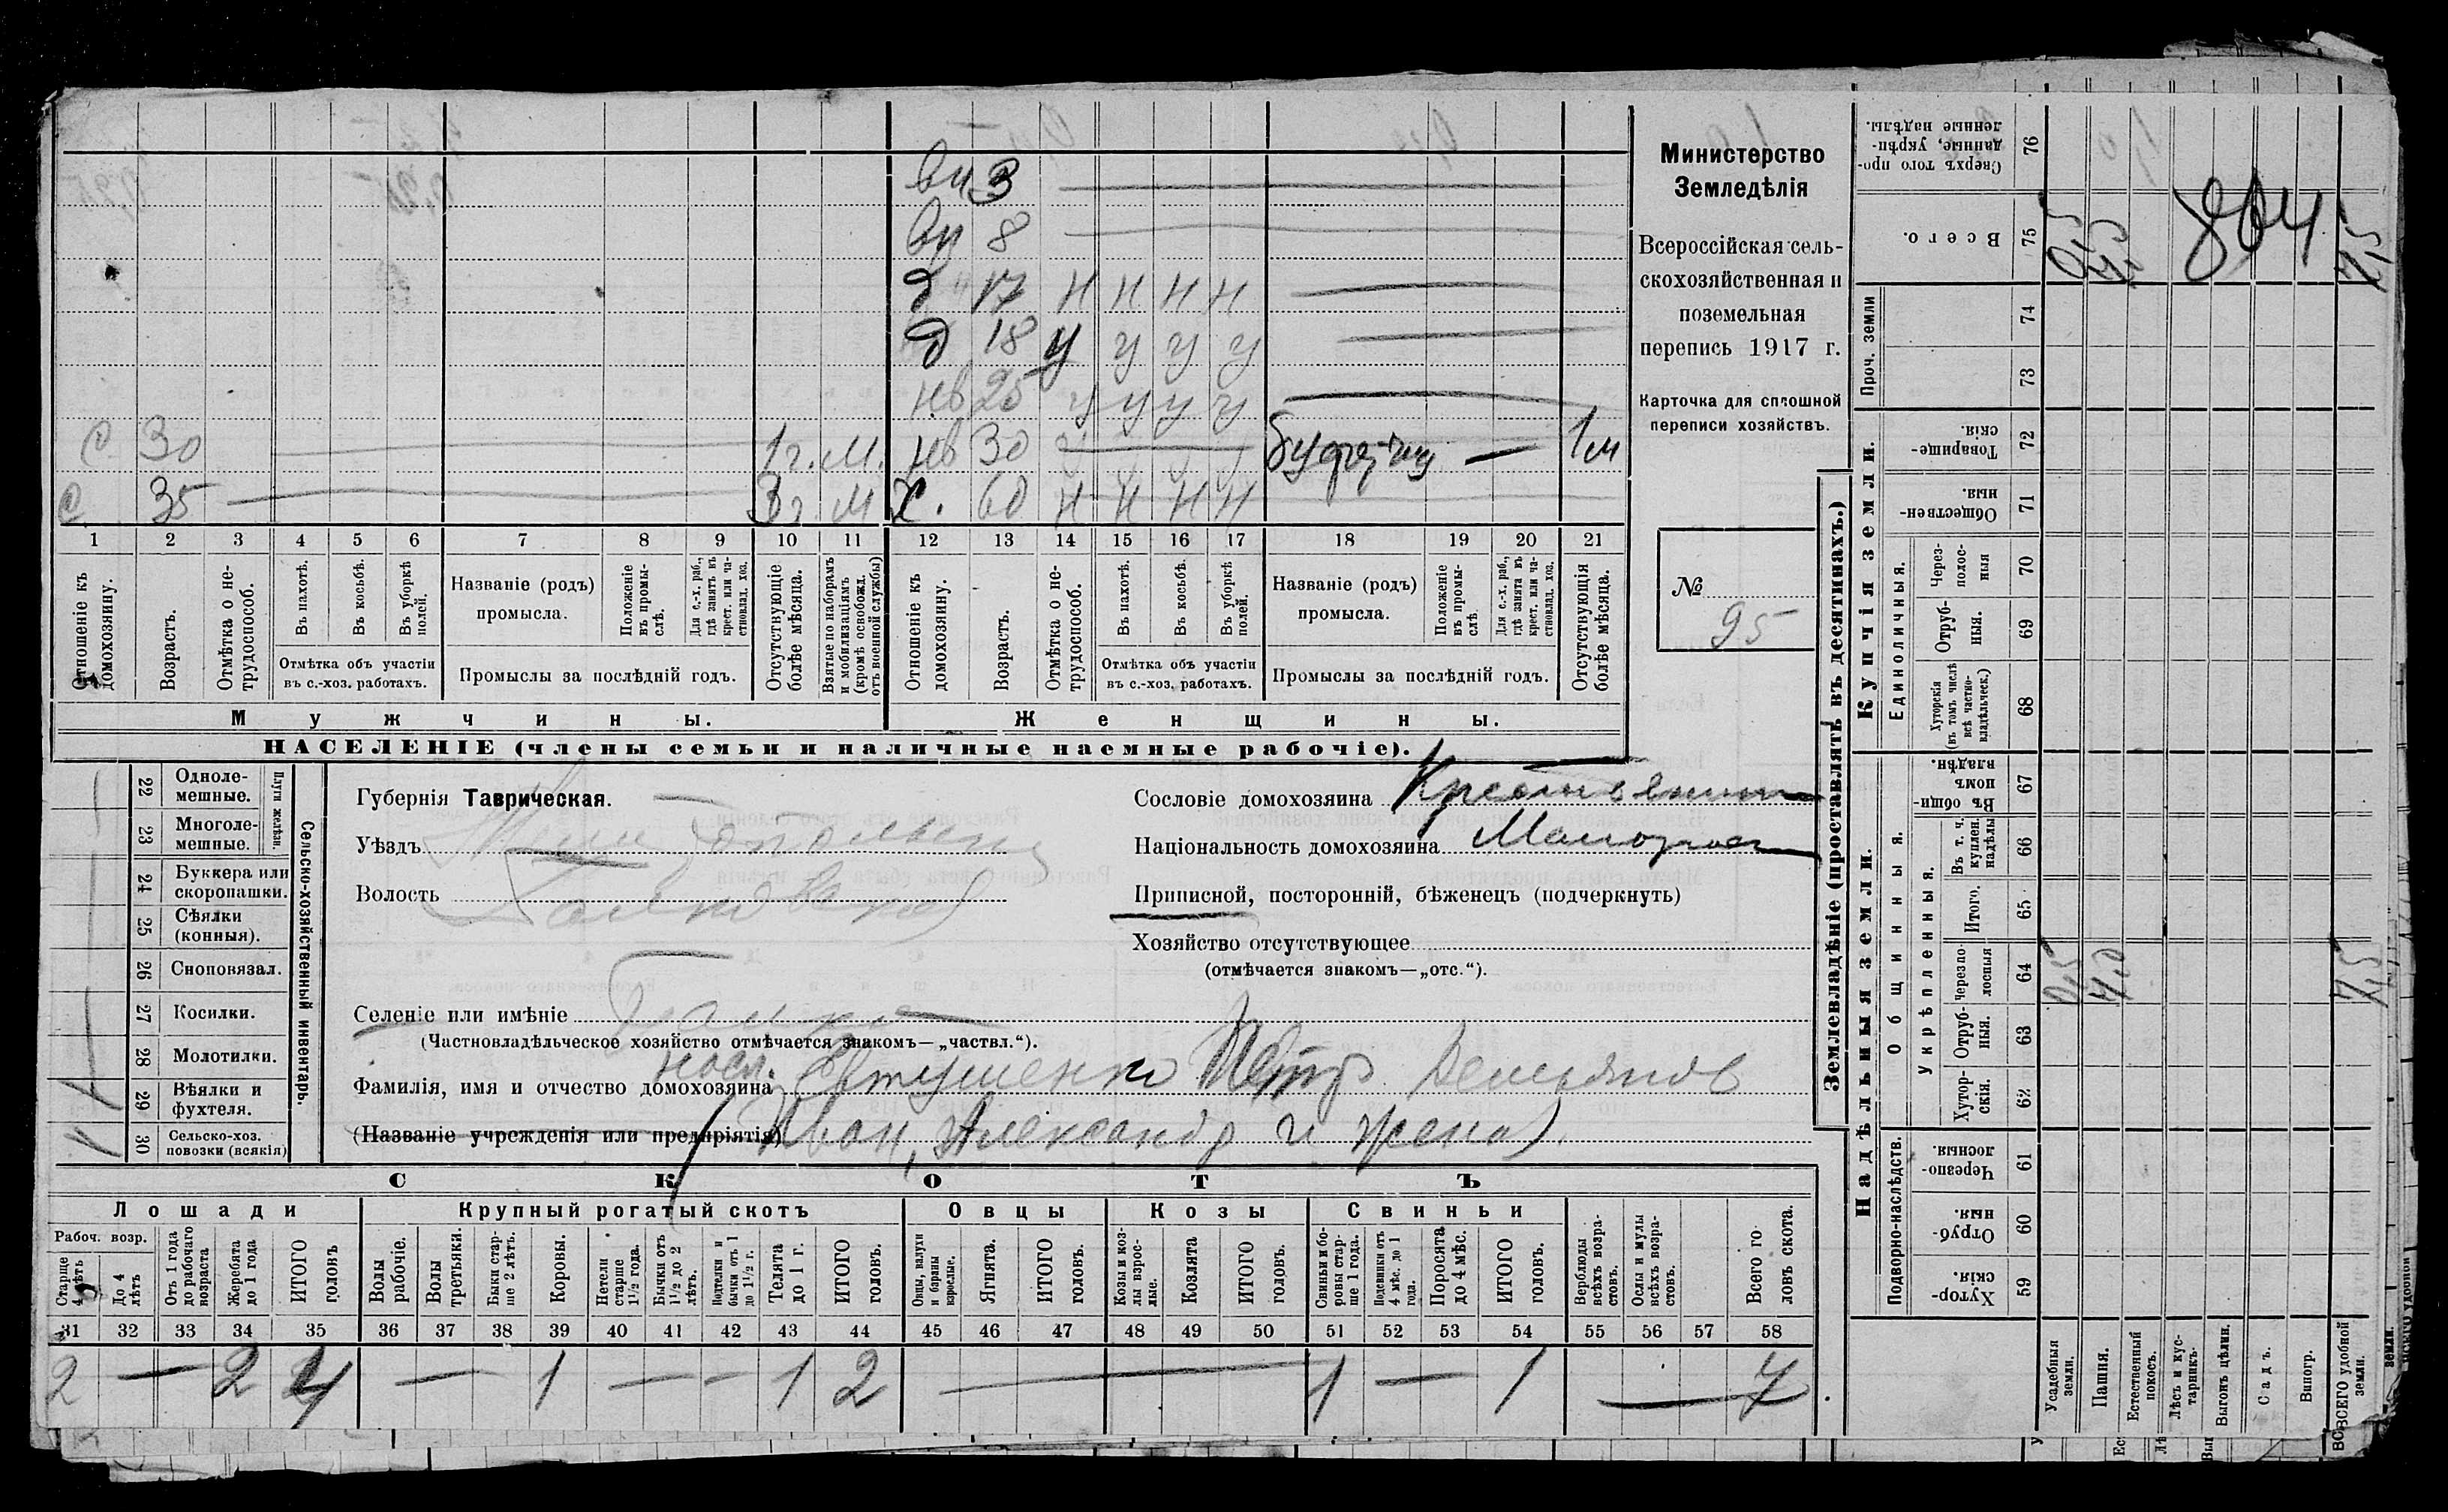 вн 3
вн 8
д 17 н н н н
д 18 у у у у
нв 25 у у у у
с 30 1 г. м. нв 30 1 м
с 35 3 г м х. 60 н н н н
1 2 3 4 5 6 7 8 9 10 11 12 13 14 15 16 17 18 19 20 21
Отношеніе къ домохозяину.
Возрастъ.
Отмѣтка о нетрудоспособ.
Въ пахотѣ.
Въ косьбѣ.
Въ уборкѣ полей.
Отмѣтка объ участіи
въ с.-хоз. работахъ.
Названіе (родъ)
промысла.
Положеніе въ промыслѣ.
Для с.-х. раб., гдѣ занятъ въ крест. или частновлад. хоз.
Промыслы за послѣдній годъ.
Отсутствующіе болѣе мѣсяца.
Взятые по наборамъ и мобилизаціямъ (кромѣ освобожд. отъ военной службы)
Отношеніе къ домохозяину.
Возрастъ.
Отмѣтка о нетрудоспособ.
Въ пахотѣ.
Въ косьбѣ.
Въ уборкѣ полей.
Отмѣтка объ участіи
въ с.-хоз. работахъ.
Названіе (родъ)
промысла.
Положеніе въ промыслѣ
Для с.-х. раб., гдѣ занята въ крест. или частновлад. хоз.
Промыслы за послѣдній годъ.
Отсутствующія болѣе мѣсяца.
Мужчины.
Женщины.
НАСЕЛЕНІЕ (члены семьи и наличные наемные рабочіе).
Министерство
Земледѣлія
Всероссійская сель-
скохозяйственная и
поземельная
перепись 1917 г.
Карточка для сплошной
переписи хозяйствъ.
№
95
22 Одноле-
мешные.
23 Многоле-
мешные.
Плуги желѣзн.
24 Буккера или
скоропашки.
25 Сѣялки
(конныя).
26 Сноповязал.
27 Косилки.
28 Молотилки.
29 Вѣялки и
фухтеля. 1
30 Сельско-хоз.
повозки (всякія)
Сельско-хозяйственный инвентарь.
Губернія Таврическая.
Уѣздъ
Волость
Селеніе или имѣніе
(Частновладѣльческое хозяйство отмѣчается знакомъ—„частвл.“).
насл.
Фамилія, имя и отчество домохозяина Евтушенко Петр Демьянов
(Названіе учрежденія или предпріятія) (Иван, Александр и жена)
Сословіе домохозяина Крестьянин
Національность домохозяина Малорос
Приписной, посторонній, бѣженецъ (подчеркнуть)
Хозяйство отсутствующее
(отмѣчается знакомъ—„отс.“).
СКОТЪ
Лошади
Крупный рогатый скотъ
Овцы
Козы
Свиньи
Рабоч. возр.
Старше 4 лѣтъ
До 4 лѣтъ
Отъ 1 года до рабочаго возраста
Жеребята до 1 года
ИТОГО головъ
Волы рабочіе.
Волы третьяки.
Быки старше 2 лѣтъ.
Коровы.
Нетели старше 1½ года.
Бычки отъ 1½ до 2 лѣтъ.
Подтелки и бычки отъ 1 до 1½ г.
Телята до 1 г.
ИТОГО головъ.
Овцы, валухи и бараны взрослые.
Ягнята.
ИТОГО головъ.
Козы и козлы взрослые.
Козлята
ИТОГО головъ.
Свиньи и боровы старше 1 года.
Подсвинки отъ 4 мѣс. до 1 года.
Поросята до 4 мѣс.
ИТОГО головъ.
Верблюды всѣхъ возрастовъ.
Ослы и мулы всѣхъ возрастовъ.
Всего головъ скота.
31 32 33 34 35 36 37 38 39 40 41 42 43 44 45 46 47 48 49 50 51 52 53 54 55 56 57 58
2 — 2 4 — 1 — – 1 2 — 1 — 1 — 7
Землевладѣніе (проставлять въ десятинахъ.)
Купчія земли.
Надѣльныя земли.
Сверхъ того проданные, укрѣпленные надѣлы. 76
Всего. 75
804
Проч. земли
74
73
Товарищескія. 72
Общественныя. 71
Единоличныя.
Черезполосныя 70
Отрубныя. 69
Хуторскія (въ томъ числѣ всѣ частновладѣльческ.) 68
Общинныя.
Въ общиномъ владѣн. 67
Укрѣпленныя.
Въ т. ч. куплен. надѣлы 66
Итого. 65
Черезполосныя 64 0,5
Отрубныя. 63
Хуторскія. 62
Подворно-наслѣдств.
Черезполосныя. 61
Отрубныя. 60
Хуторскія. 59
Усадебныя земли.
Пашня.
Естественный покосъ.
Лѣсъ и кустарникъ.
Выгонъ цѣлин.
Садъ.
Виногр.
ВСЕГО удобной земли.